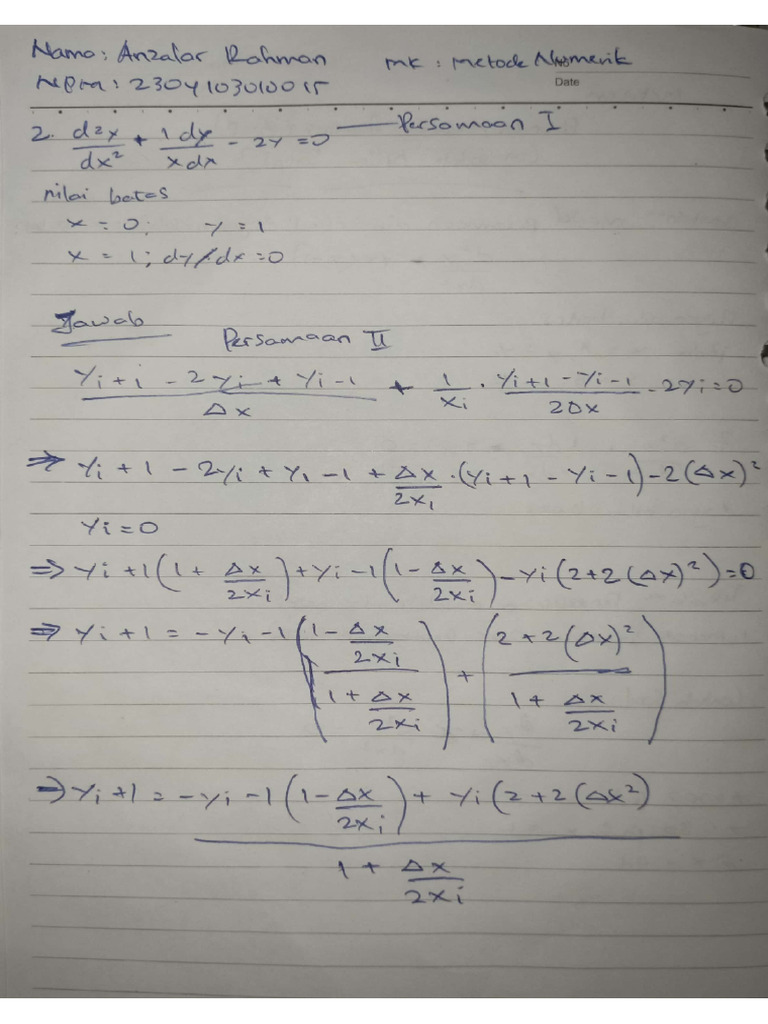 Nama: Anzalar Rahman MK : Metode Numerik
NPM : 2304103010015 Date
2. d2x/dx² + 1 dy/x dx - 2y = 0 — Persamaan I
nilai batas
x = 0; y = 1
x = 1; dy/dx = 0
Jawab
Persamaan II
yi+1 - 2yi + yi-1/Δx + 1/xi . yi+1 - yi-1/2Δx - 2yi = 0
⇒ yi+1 - 2yi + yi-1 + Δx/2xi . (yi+1 - yi-1) - 2(Δx)²
yi = 0
⇒ yi+1 (1 + Δx/2xi) + yi-1 (1 - Δx/2xi) - yi (2+2(Δx)²) = 0
⇒ yi+1 = -yi-1 (1 - Δx/2xi / 1 + Δx/2xi) + (2+2(Δx)² / 1 + Δx/2xi)
⇒ yi+1 = -yi-1 (1 - Δx/2xi) + yi (2+2(Δx²)
1 + Δx/2xi